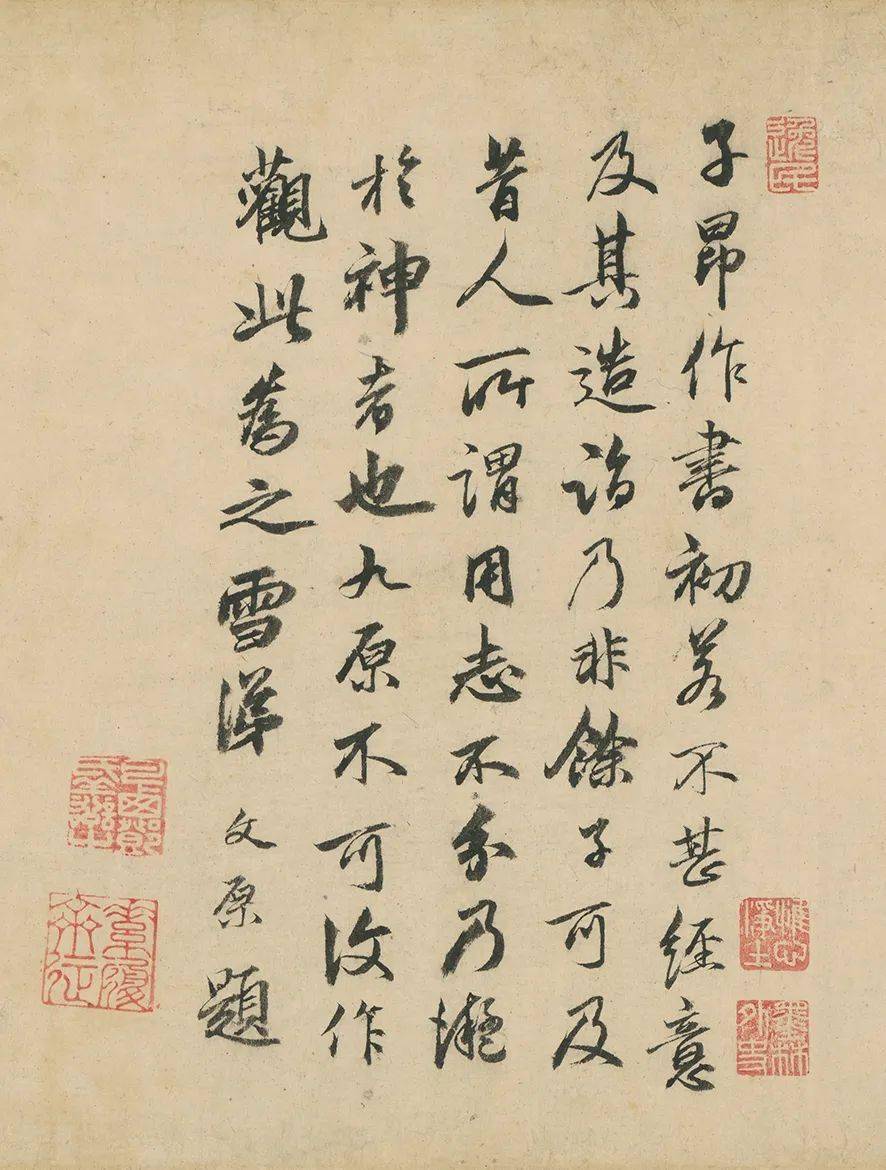 子昂作書初若不甚經意
及其造詣乃非餘子可及
昔人所謂用志不分乃凝
於神者也九原不可復作
觀此為之雪涕文原題
惟心淨土